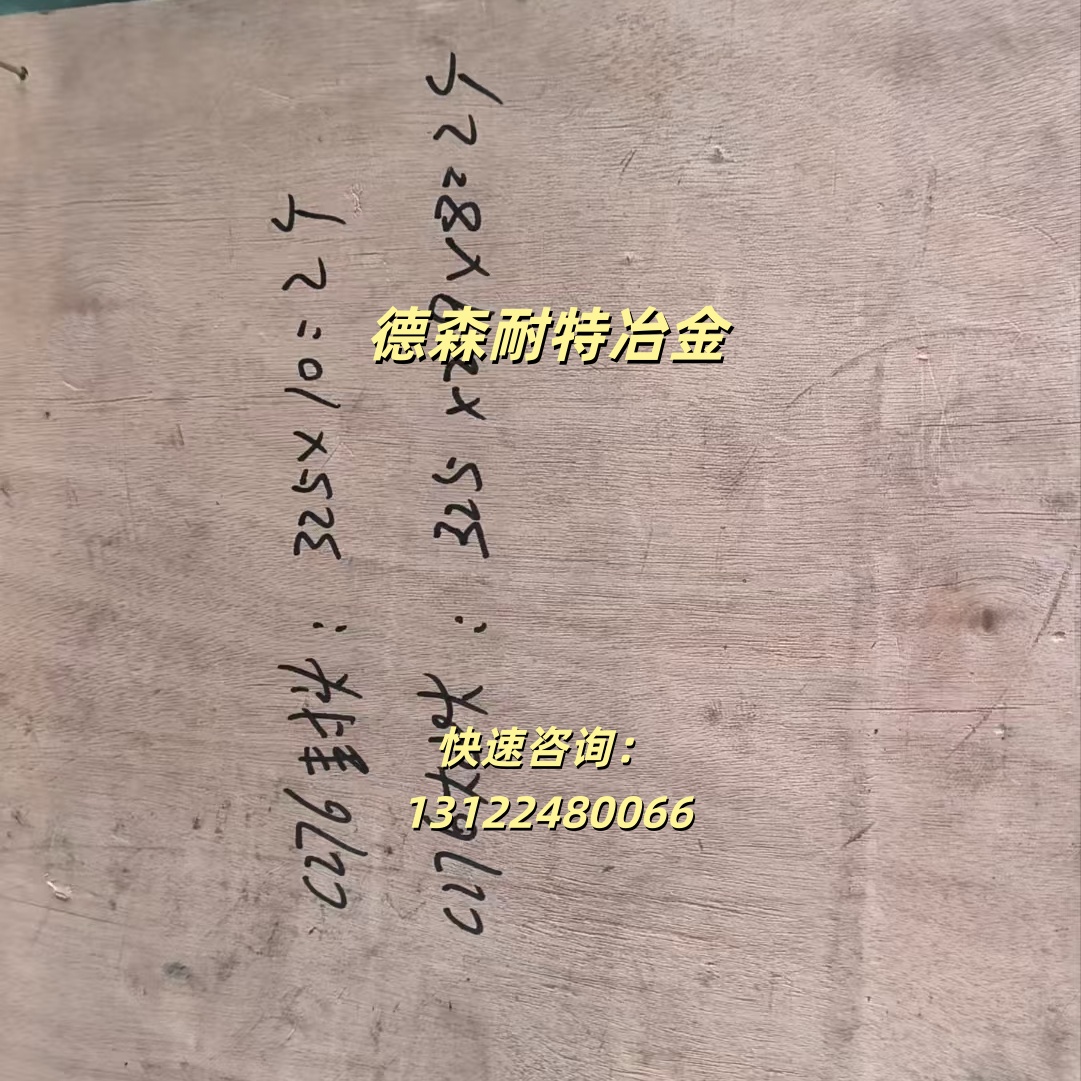 C276封头：325×10=2个
C276大小头：325×2 ×8=2个
德森耐特冶金
快速咨询：
13122480066